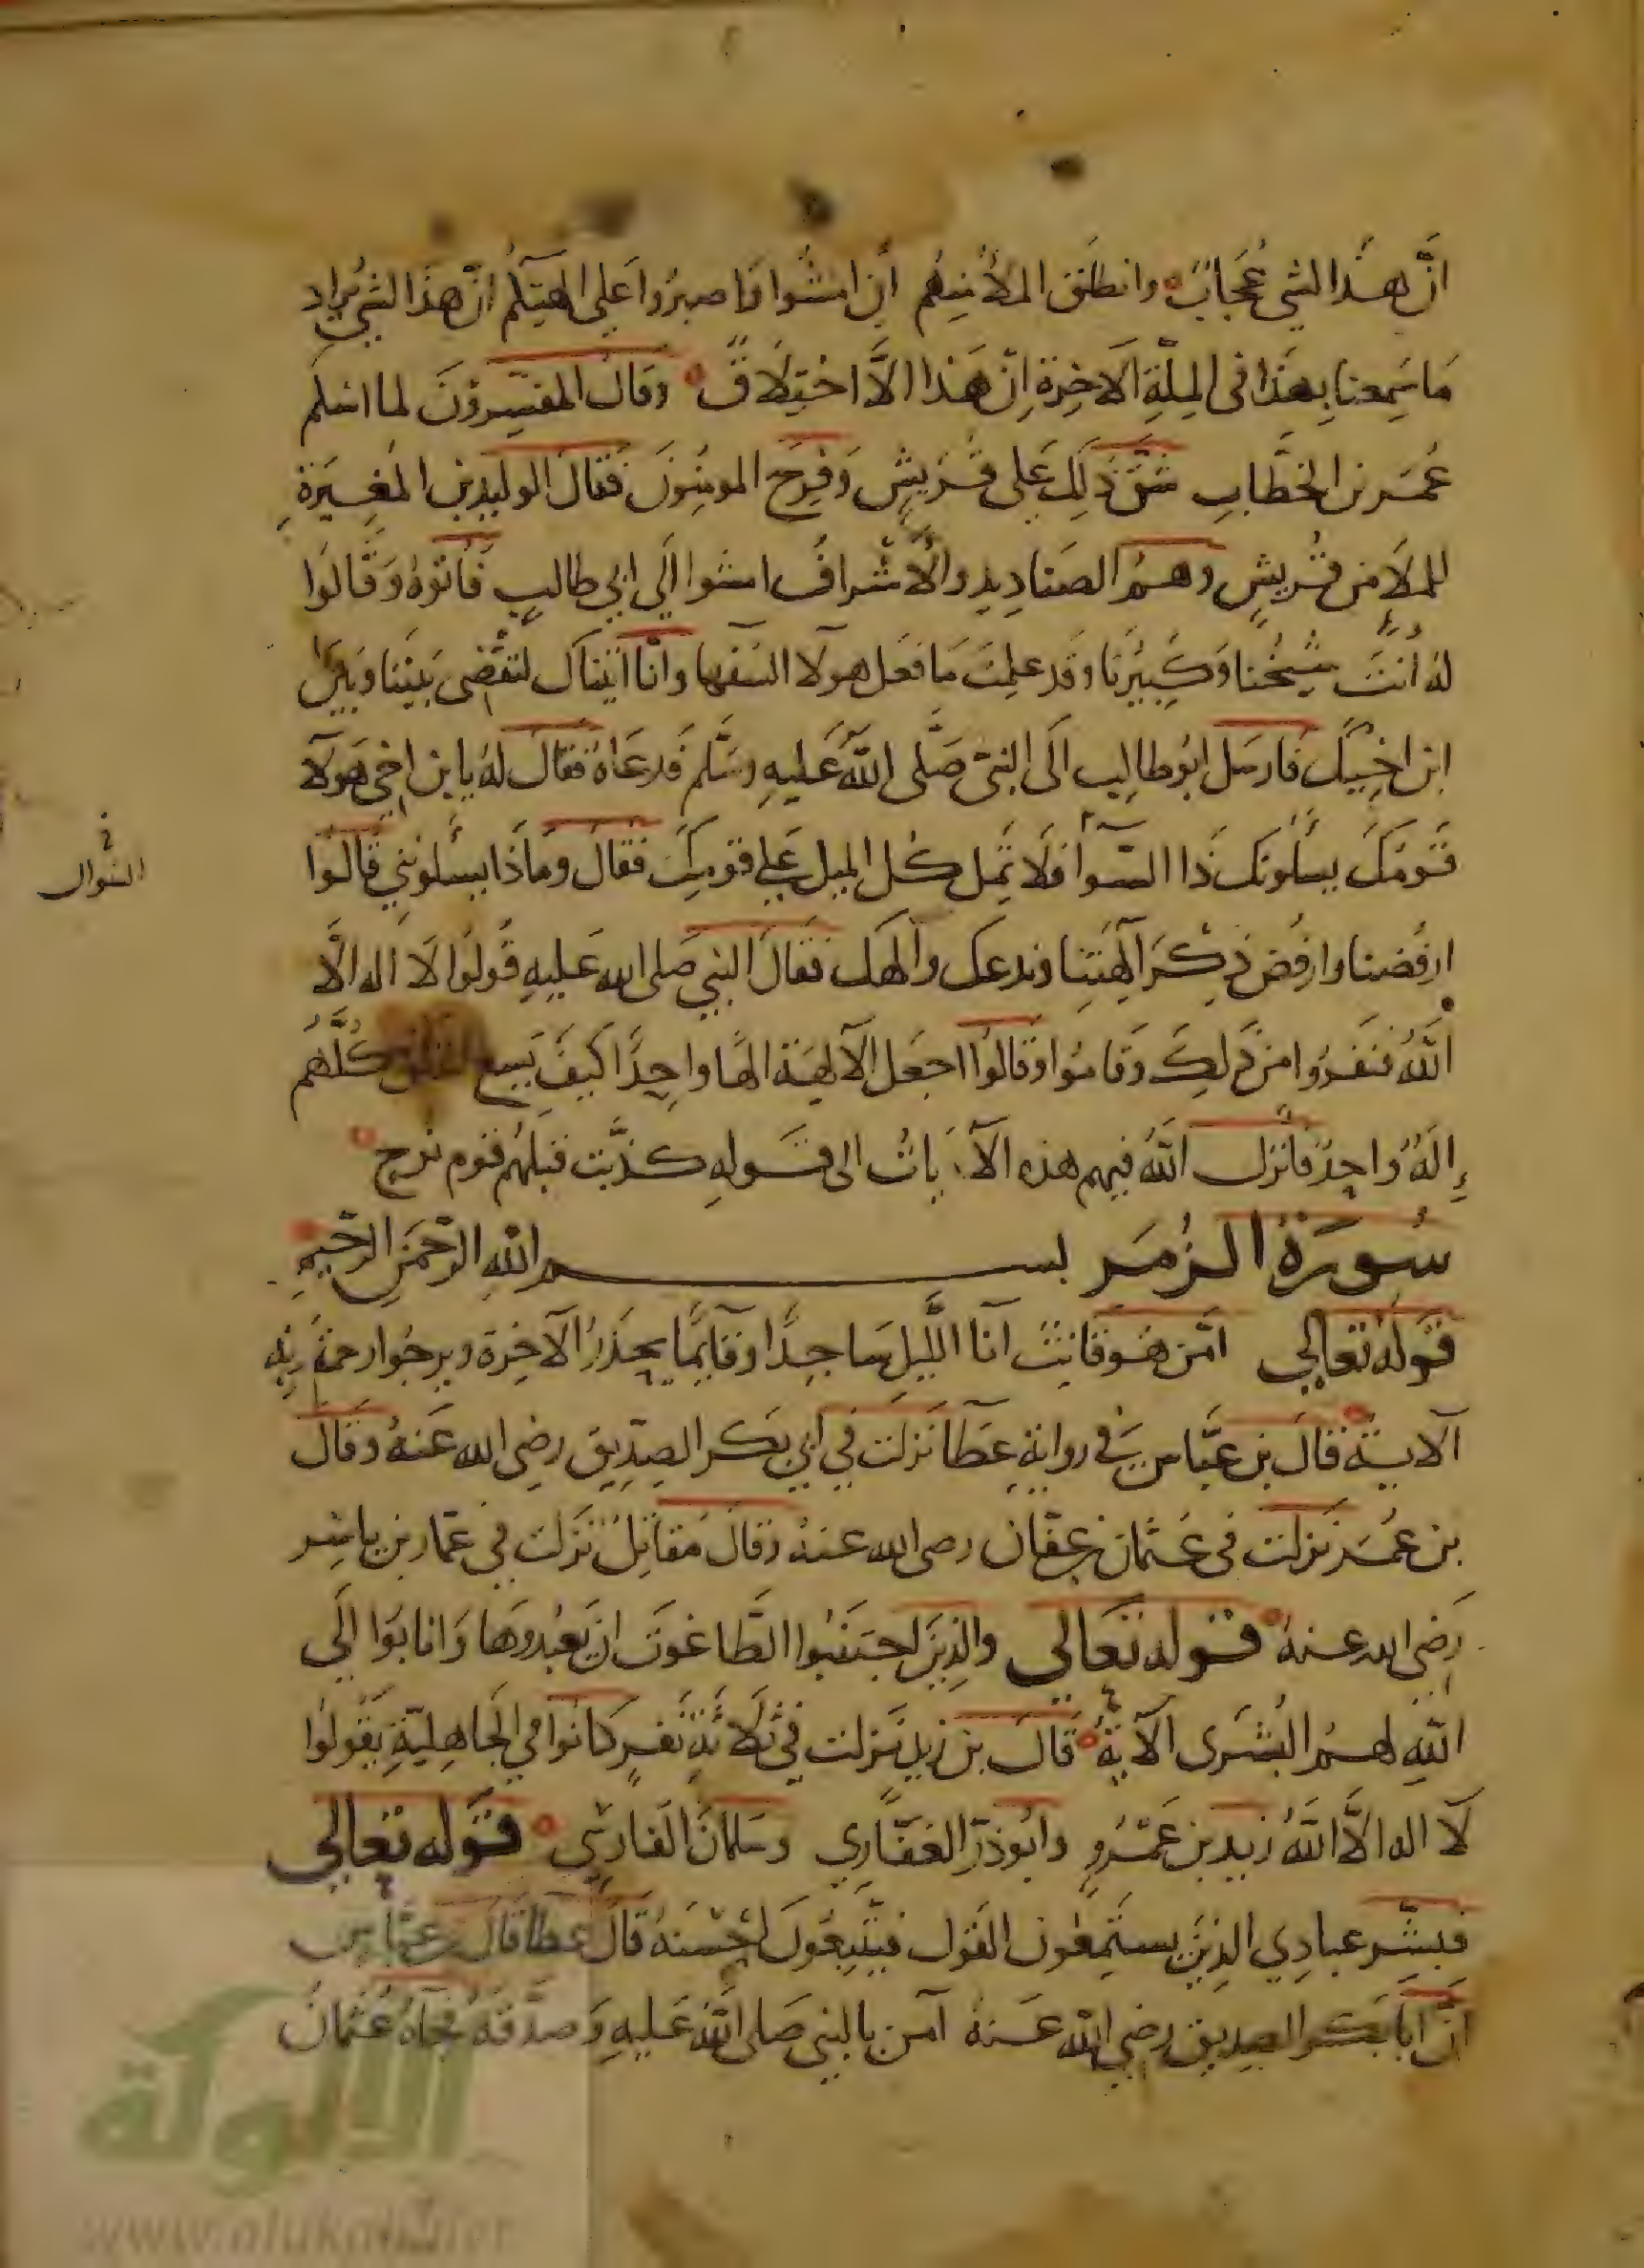 انَّ هَذا لشي عُجَابٌ وانطَلق الملأ مِنهُم أن امشُوا وَاصبرُوا عَلى الهَتِكُم انّ هَذا لشي يُراد
مَا سَمِعنا بِهَذا في المِلَّةِ الاَخِرةِ اِنْ هَذا الاَّ اخْتِلَاقٌ وقَالَ المفَسِرونَ لما اسْلم
عُمَر بن الخطَّابِ شَقَّ ذلِكَ عَلى قُرَيشٍ وَفرِحَ المومِنُونَ فقالَ الوليد بن المُغِيرَةِ
للملَا من قُريشٍ وهمُ الصنادِيد والأشْرافُ امشوا اِلَى ابي طالبٍ فأتوهُ وَقَالوا
لهُ انتَ شَيخُنا وَكَبيرُنا وقَد علِمتَ مَا فعَل هولا السُفهآ وانَّا اتيناكَ لتقضى بَينَنا وَبَيْنَ
ابن اخِيكَ فارسَل ابُو طالِب الَى النبيّ صَلَّى اللَّهُ عَليهِ وسَلَّم فَدعَاهُ فقالَ لهُ يا بن اخِي هَولآ
قَومُكَ يسألونك ذا السّوآ فَلَا تَمِل كُل الميل عَلي قومِكَ فقالَ ومَاذَا يسألونِني قَالُوا
السوال
ارفُضنا وارفُض ذِكْرَ آلِهَتِنا وندعك وآلهَك فقَالَ النبي صَلى الله عَليهِ قُولوُا لَا اله الَّا
اللَّهُ فنَفَرُوا من ذَلِكَ وقامُوا وَقالُوا اجعَل الآلهَة الهًا واحِدًا كَيفَ يَسع كُلَّهُم
إِلَهٌ وَاحِدٌ فانزل اللَّهُ فيهم هذه الآيَاتُ الى قَولهِ كذَّبت قبلهُم قوم نوح
سُورَةُ الزُمَر بسم اللهِ الرَّحمَنِ الرَّحيمِ
قَولهُ تعَالى امَّن هُو قَانِتٌ آنا اللَّيلِ سَاجِدًا وقآيمًا يحذرُ الآخِرة ويرجُوا رحمَةَ ربِّه
الآيَة قالَ بن عبَّاسٍ في روايةِ عطَآ نزلت في ابي بَكر الصِدّيقِ رضي الله عَنهُ وقَالَ
بن عُمَر نزلت في عُثمان بن عفّان رضى الله عنهُ وقالَ مُقاتِلُ نَزَلت في عمّار بن ياسِر
رَضى الله عنهُ قوله تعَالى والذِينَ اجتنَبُوا الطَّاغوتَ ان يَعبُدوهَا وَانابُوا الَي
اللَّهِ لهمُ البُشرَى الآيةُ قَالَ بن زيد نَزلت في ثلَاثَةِ نفرٍ كَانوا في الجَاهِليَّةِ يَقُولُوا
لآ اله الاَّ اللَّهُ زيد بن عَمْرُو وابُو ذرّ الغفَّاري وسَلمانَ الفارِسِي قَوله تعالى
فبشِّر عبادِي الذِينَ يستَمِعُون القَول فيَتَّبِعُونَ احْسَنَهُ قالَ عطا قالَ بن عبّاسٍ
انَّ ابا بكر الصديق رضي الله عَنهُ آمن بالنبي صَلى الله عَليهِ وَصدَّقهُ فجآهُ عُثمانُ
الألوكة
www.alukah.net